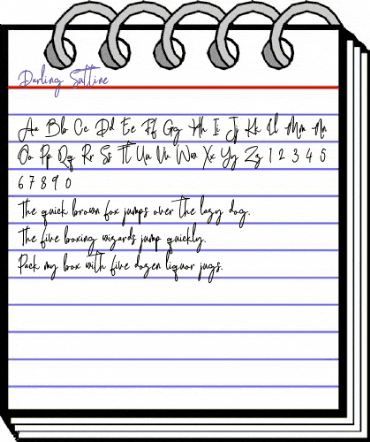 Darling Suttire
Aa Bb Cc Dd Ee Ff Gg Hh Ii Jj Kk Ll Mm Nn
Oo Pp Qq Rr Ss Tt Uu Vv Ww Xx Yy Zz 1 2 3 4 5
6 7 8 9 0
The quick brown fox jumps over the lazy dog.
The five boxing wizards jump quickly.
Pack my box with five dozen liquor jugs.